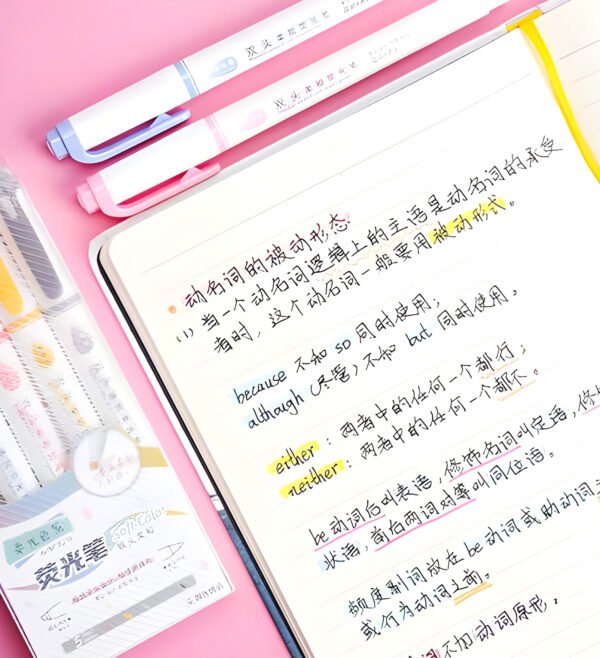 双头
双头
动名词的被动形态
(1) 当一个动名词逻辑上的主语是动名词的承受
者时，这个动名词一般要用被动形式。
because 不和 so 同时使用；
although (尽管) 不和 but 同时使用。
either：两者中的任何一个都行；
neither：两者中的任何一个都不。
be动词后叫表语，修饰名词叫定语，修
状语，前后两词对等叫同位语。
频度副词放在 be 动词或助动词
或行为动词之前。
词不扣动词原形，
荧光笔